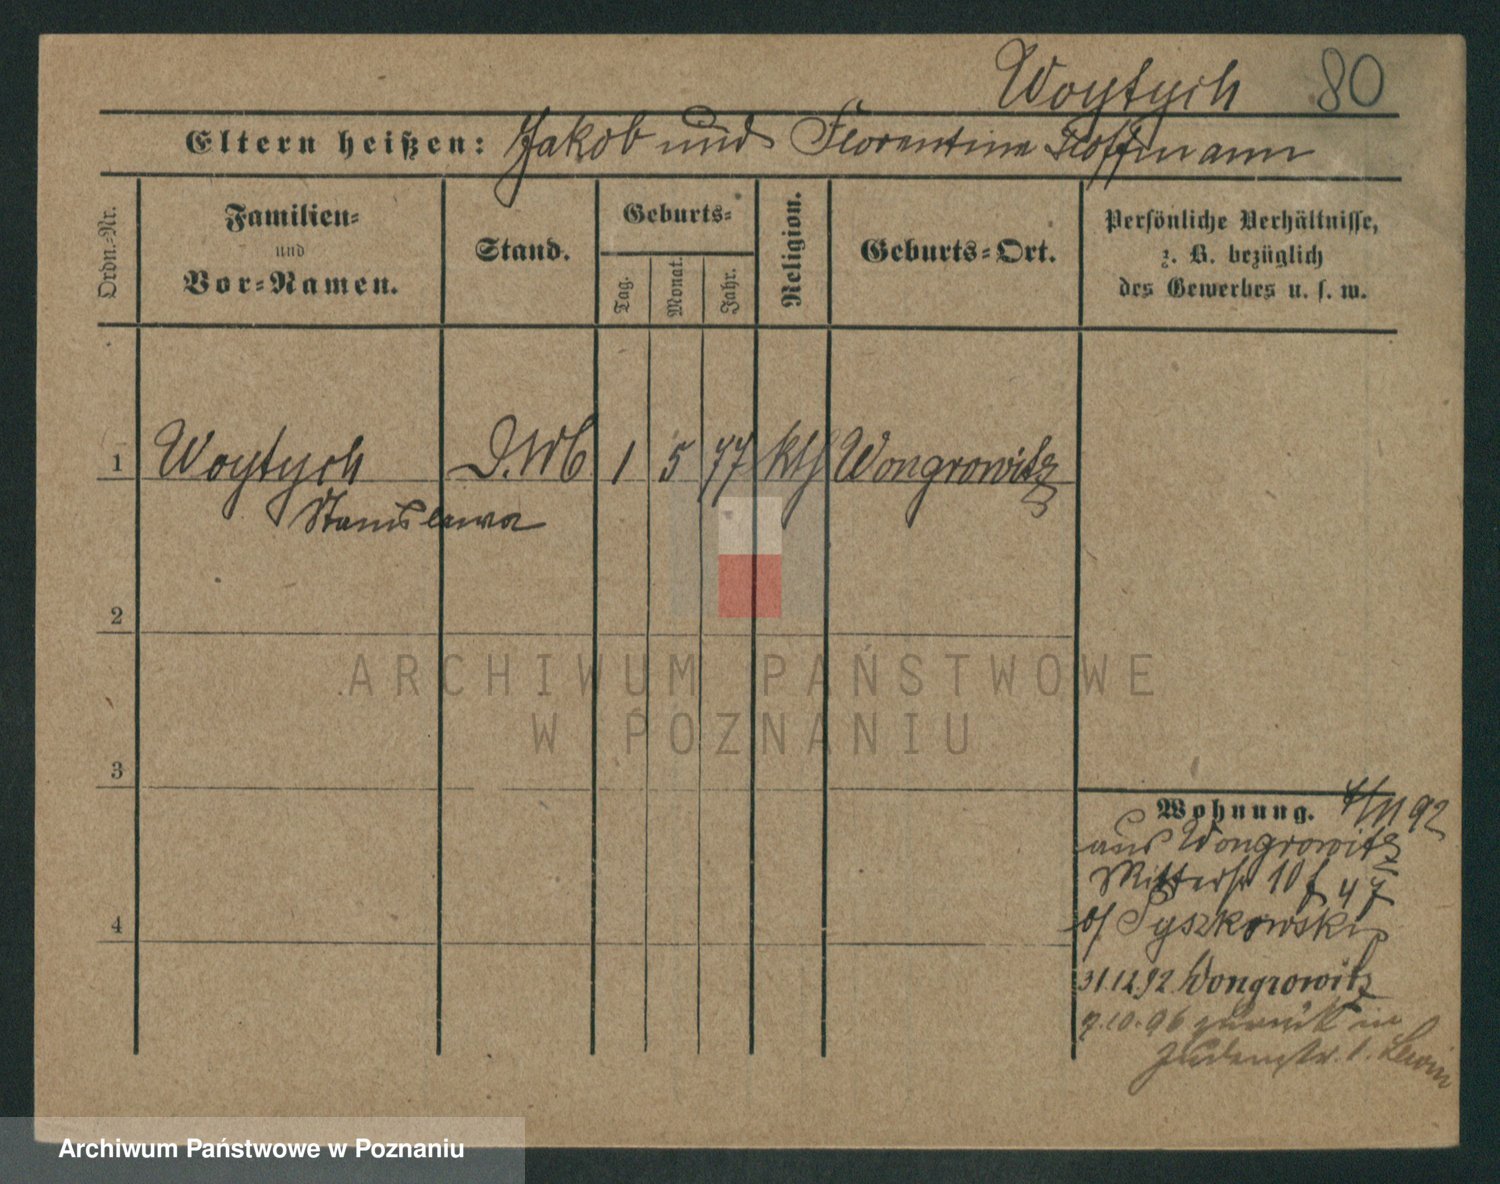 Woytych 80
Eltern heißen: Jakob und Florentine Hoffmann
Ordn.-Nr.
Familien-
und
Vor-Namen.
Stand.
Geburts-
Tag.
Monat.
Jahr.
Religion.
Geburts-Ort.
Persönliche Verhältnisse,
z. B. bezüglich
des Gewerbes u. s. w.
1 Woytych D.Mb 1 5 77 kth Wongrowitz
Stanislawa
2
3
4
Wohnung. 4/11 92
aus Wongrowitz
Ritterstr 10
b/ Tyszkowski
31.12.92 Wongrowitz
7.10.96 zurück in
Judenstr. 1. Lewin
ARCHIWUM PAŃSTWOWE
W POZNANIU
Archiwum Państwowe w Poznaniu